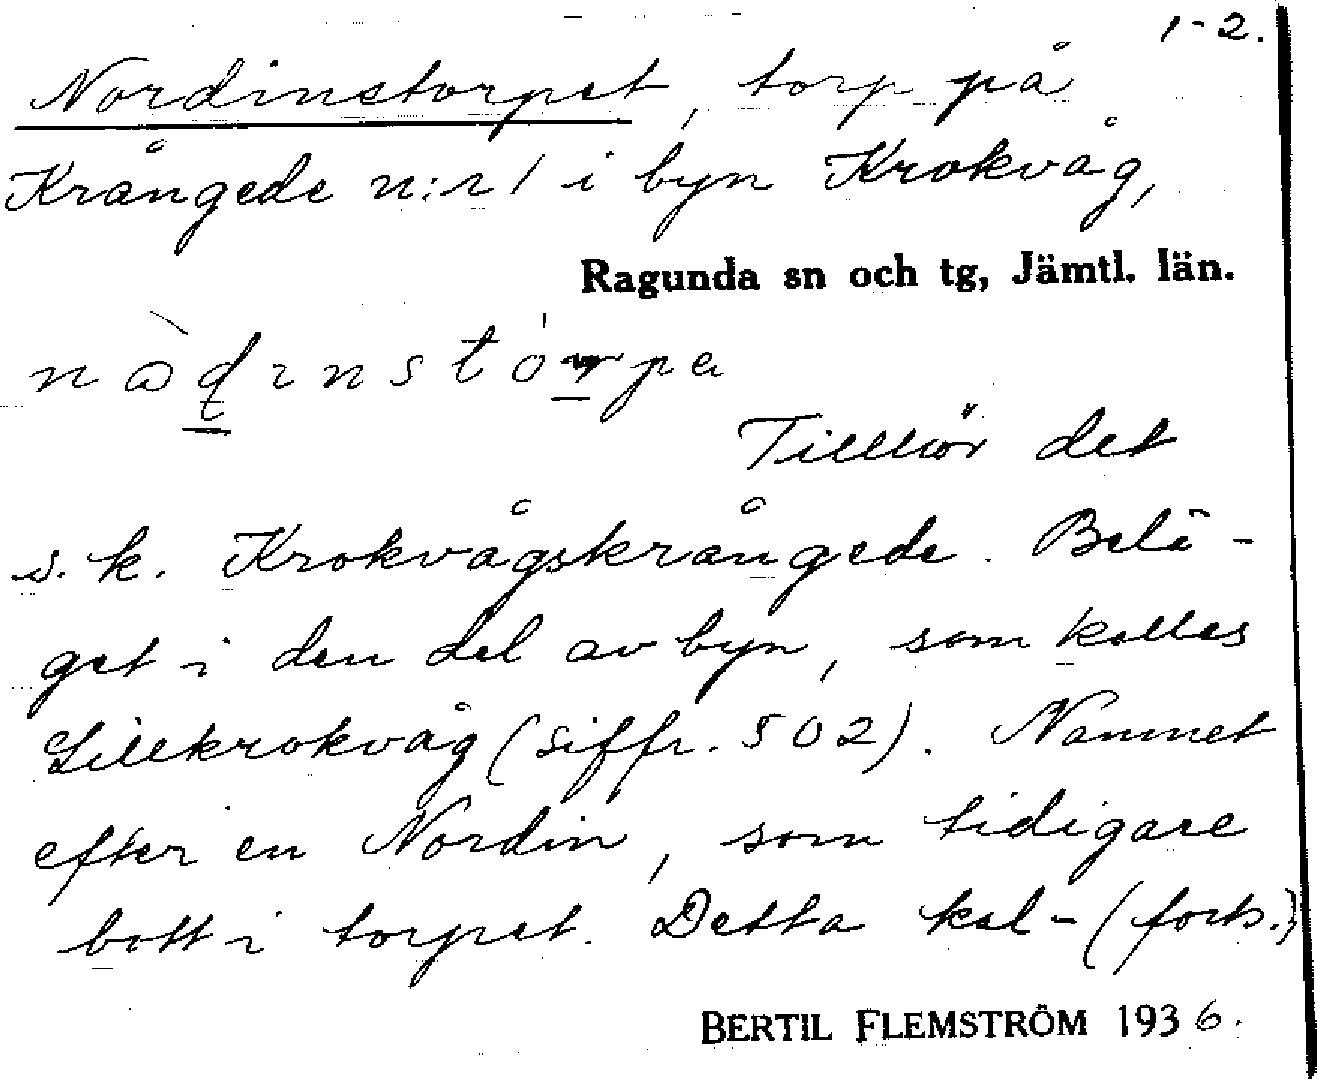 1-2.
Nordinstorpet, torp på
Krångede n:r 1 i byn Krokvåg,
Ragunda sn och tg, Jämtl. län.
Tillhör det
s.k. Krokvågskrångede. Belä-
get i den del av byn, som kallas
Lillkrokvåg (siffr. 502). Namnet
efter en Nordin, som tidigare
bott i torpet. Detta kal- (forts.)
BERTIL FLEMSTRÖM 1936.